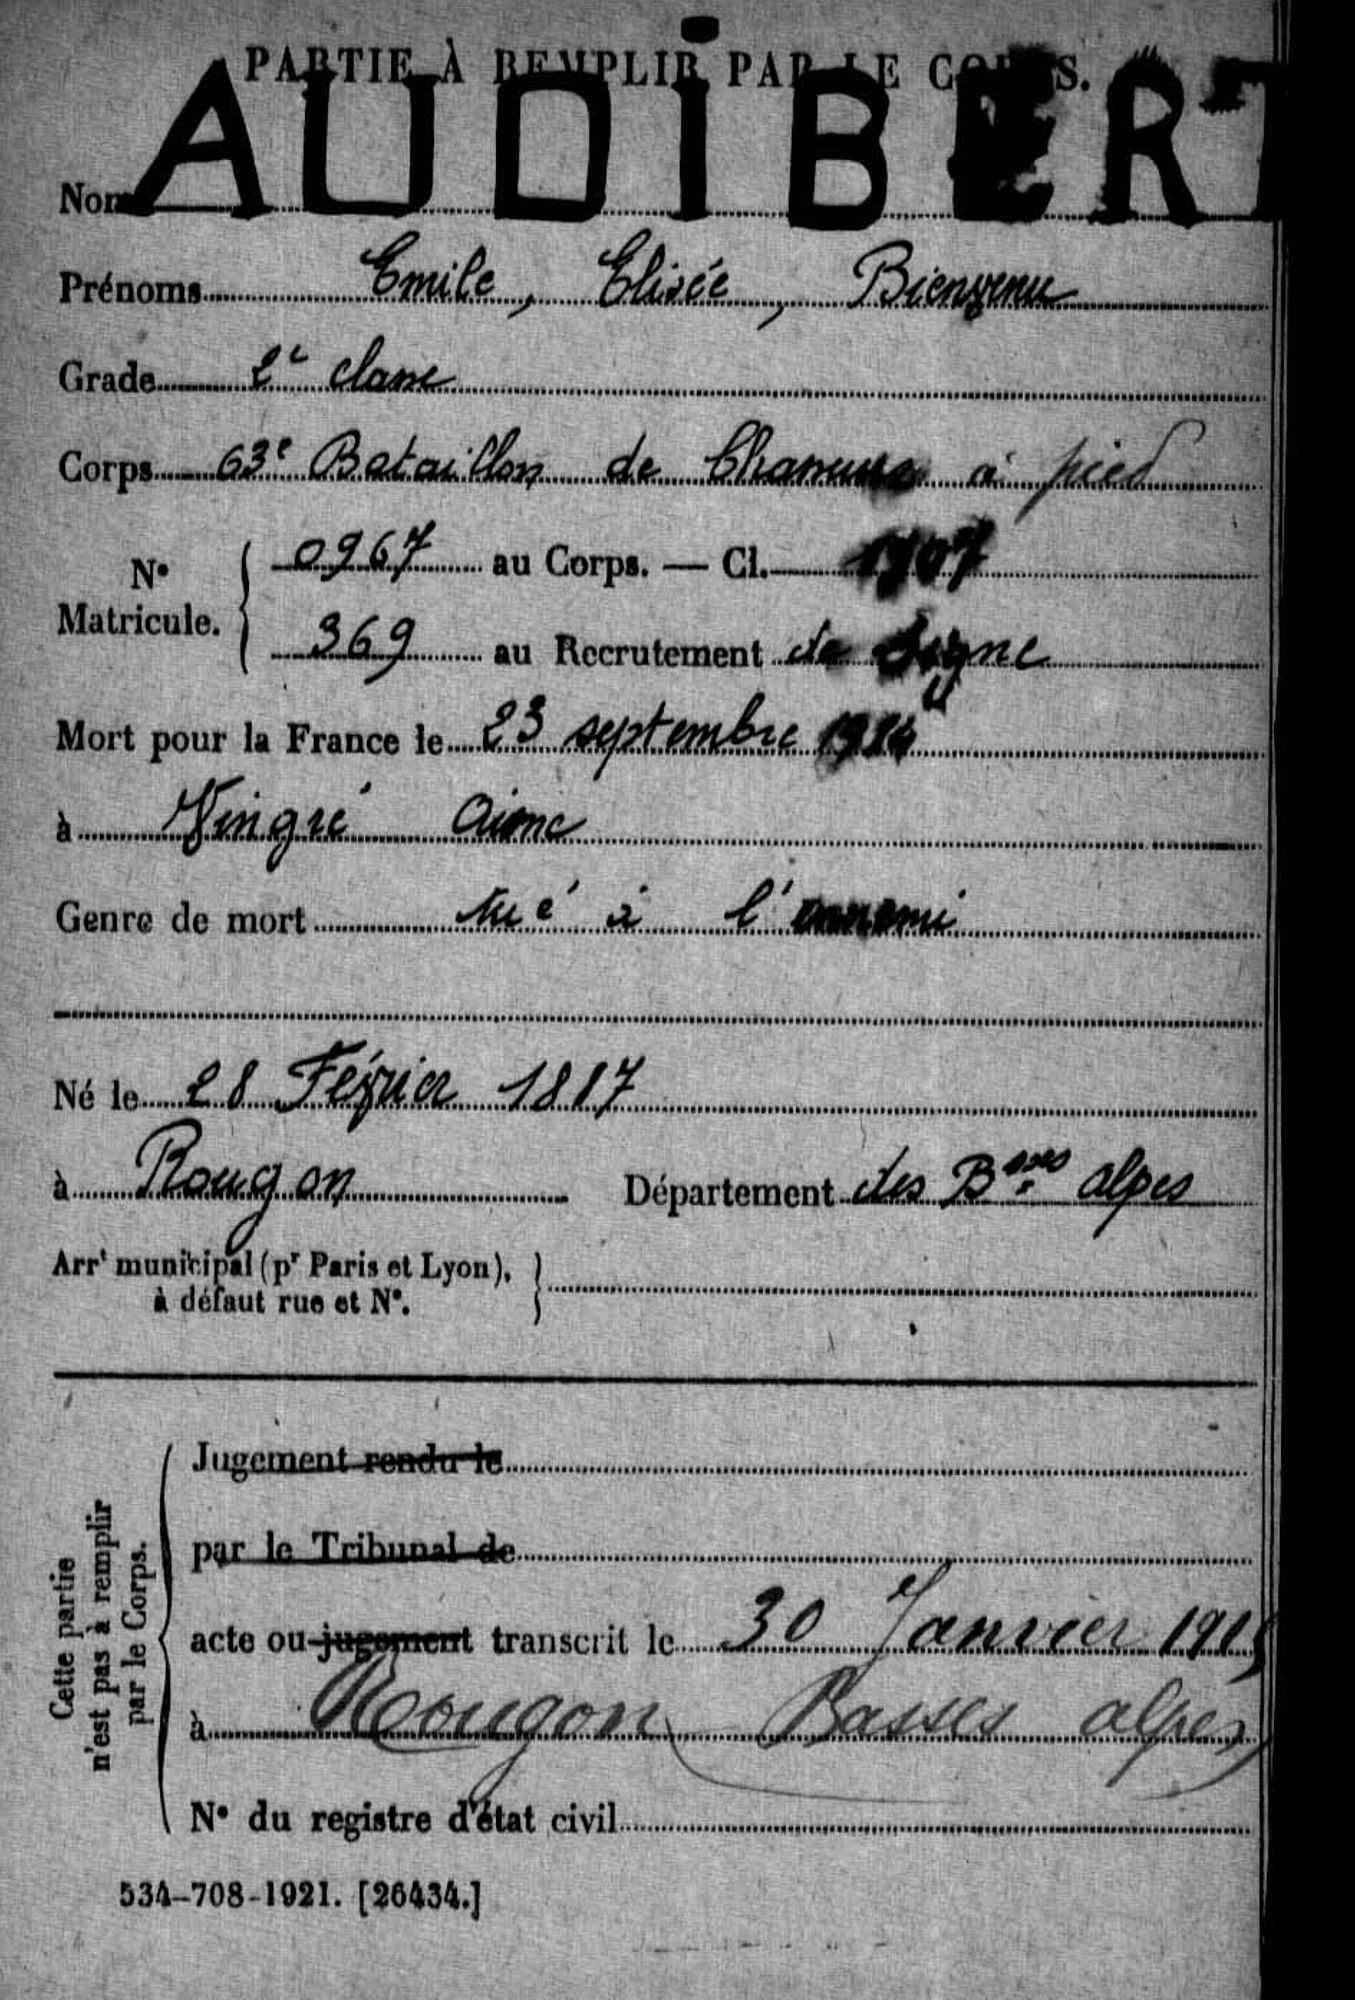 PARTIE À REMPLIR PAR LE CORPS.
Nom AUDIBERT
Prénoms Emile, Elisée, Bienvenu
Grade 2e classe
Corps 63e Bataillon de Chasseurs à pied
N° Matricule. { 0967 au Corps. — Cl. 1907
369 au Recrutement de Digne
Mort pour la France le 23 septembre 1914
à Vingré Aisne
Genre de mort tué à l'ennemi
Né le 28 Février 1887
à Rougon Département des Bsses alpes
Arrt municipal (pr Paris et Lyon), }
à défaut rue et N°.
Cette partie n'est pas à remplir par le Corps.
Jugement rendu le
par le Tribunal de
acte ou jugement transcrit le 30 Janvier 1915
à Rougon Basses alpes
N° du registre d'état civil
534-708-1921. [26434.]